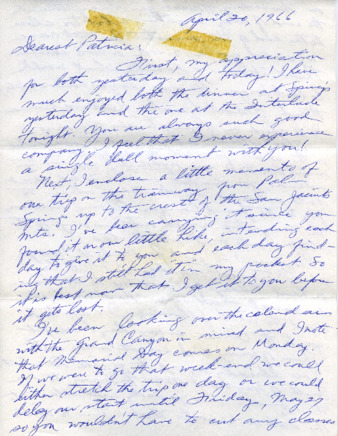 April 20, 1966
Dearest Patricia:
First, my appreciation
for both yesterday and today! I have
much enjoyed both the dinner at
yesterday and the one at the Interlude
tonight. You are always such good
company. I feel that I never experience
a single dull moment with you!
Next, I enclose a little memento of
our trip on the tramway from Palm
Springs up to the crest of the San Jacinto
Mts. I've been carrying it since you
found it on our little hike intending each
day to give it to you and each day find-
ing that I still had it in my pocket. So
it is best now that I get it to you before
it gets lost.
I've been looking over the calendar
with the Grand Canyon in mind and I note
that Memorial Day comes on Monday.
If we were to go that week-end we could
either stretch the trip one day or we could
delay our start until Friday, May 27
so you wouldn't have to cut any classes